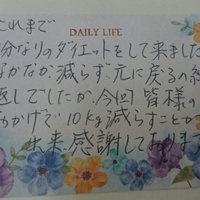 これまで
DAILY LIFE
分なりのダイエットをして来ました
かなか減らず、元に戻るの繰
返しでしたが、今回皆様の
おかげで10kg減らすことが
出来、感謝しております